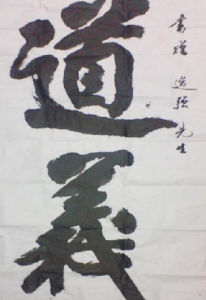 道義
書贈 逸強先生